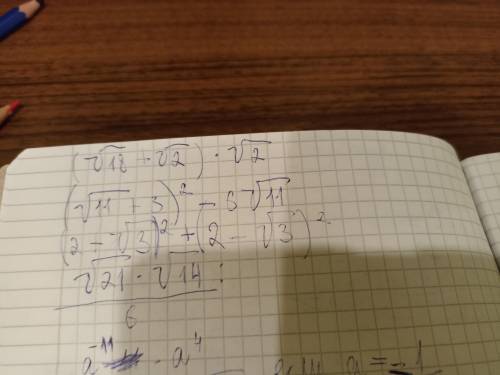 (√18 + √2) · √2
(√11 + 3)² - 6√11
(2 - √3)² + (2 - √3)²
√21 · √14 :
6
a⁻¹¹ · a⁴